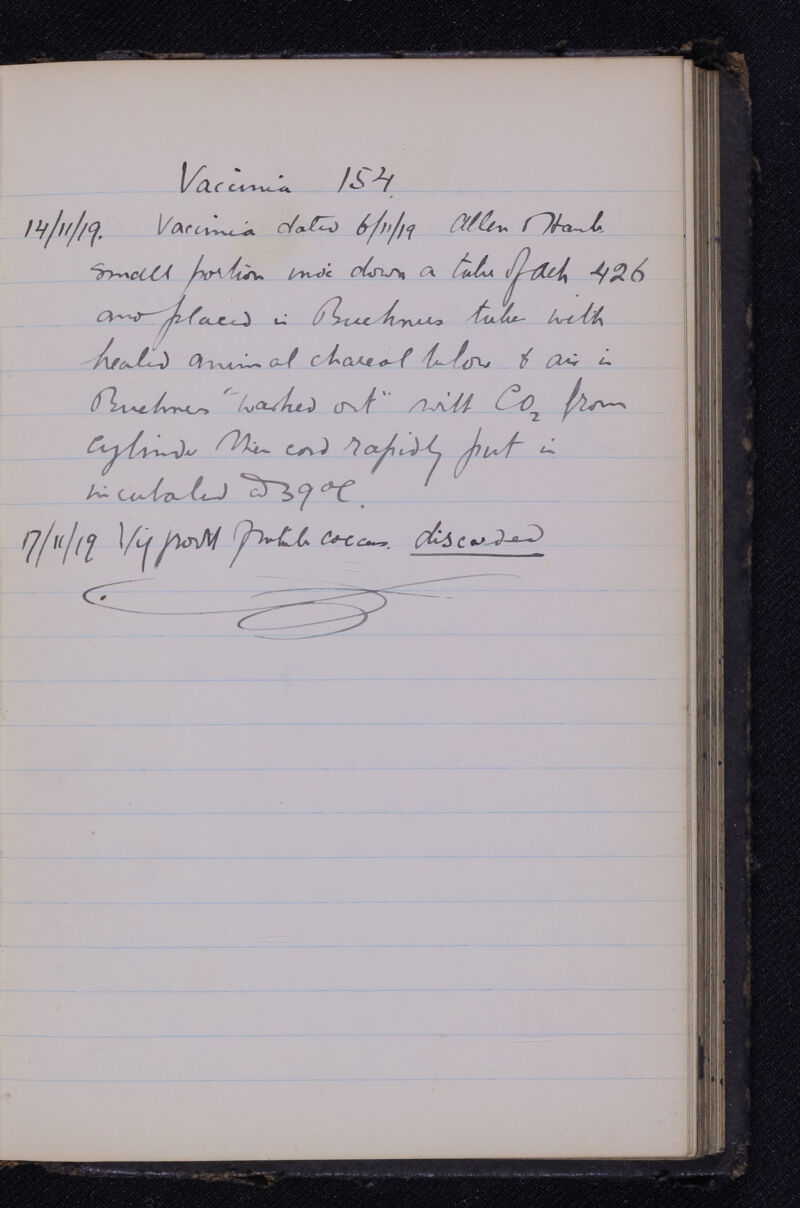 Vaccinia 154
14/11/19. Vaccinia dated 6/11/19 Allen & Hanb
small portion down a tube of 426
and placed in Buchners tube with
heated animal charcoal below & air in
Buchners "washed out" with CO2 from
cylinder then cord rapidly put in
incubated at 39°C.
17/11/19 growth of white coccus. discarded